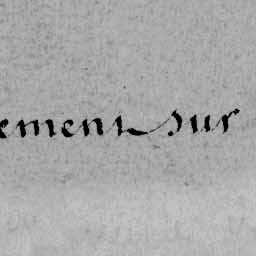 emens sur